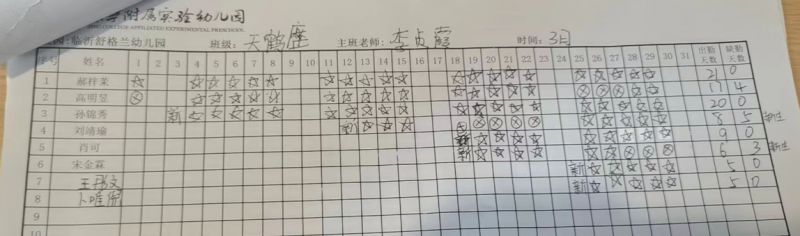 学附属实验幼儿园
COLLEGE AFFILIATED EXPERIMENTAL PRESCHOOL
园:临沂舒格兰幼儿园 班级: 天鹤座 主班老师: 李贞霞 时间: 3月
序号 姓名 1 2 3 4 5 6 7 8 9 10 11 12 13 14 15 16 17 18 19 20 21 22 23 24 25 26 27 28 29 30 31 出勤天数 缺勤天数
1 郝梓茉 ☆ ☆ ☆ ☆ ☆ ☆ ☆ ☆ ☆ ☆ ☆ ☆ ☆ ☆ ☆ ☆ ☆ ☆ ☆ ☆ ☆ 21 0
2 高明昱 ⊗ ☆ ☆ ☆ ☆ ☆ ☆ ☆ ☆ ☆ ☆ ☆ ☆ ☆ ☆ ☆ ⊗ ⊗ ⊗ ☆ ☆ 17 4
3 孙锦秀 新 ☆ ☆ ☆ ☆ ☆ ☆ ☆ ☆ ☆ ☆ ☆ ☆ ☆ ☆ ☆ ☆ ☆ ☆ ☆ ☆ 20 0
4 刘靖瑜 新 ☆ ☆ ☆ ⊗ ⊗ ⊗ ⊗ ⊗ ☆ ☆ ☆ ☆ ☆ 8 5 新生
5 肖可 新 ☆ ☆ ☆ ☆ ☆ ☆ ☆ ☆ ☆ 9 0
6 宋金霖 新 ☆ ☆ ☆ ☆ ☆ ☆ ⊗ ⊗ ⊗ 6 3 新生
7 王 新 ☆ ☆ ☆ ☆ ☆ 5 0
8 卜唯 新 ☆ ☆ ☆ ☆ ☆ 5 0
9
10